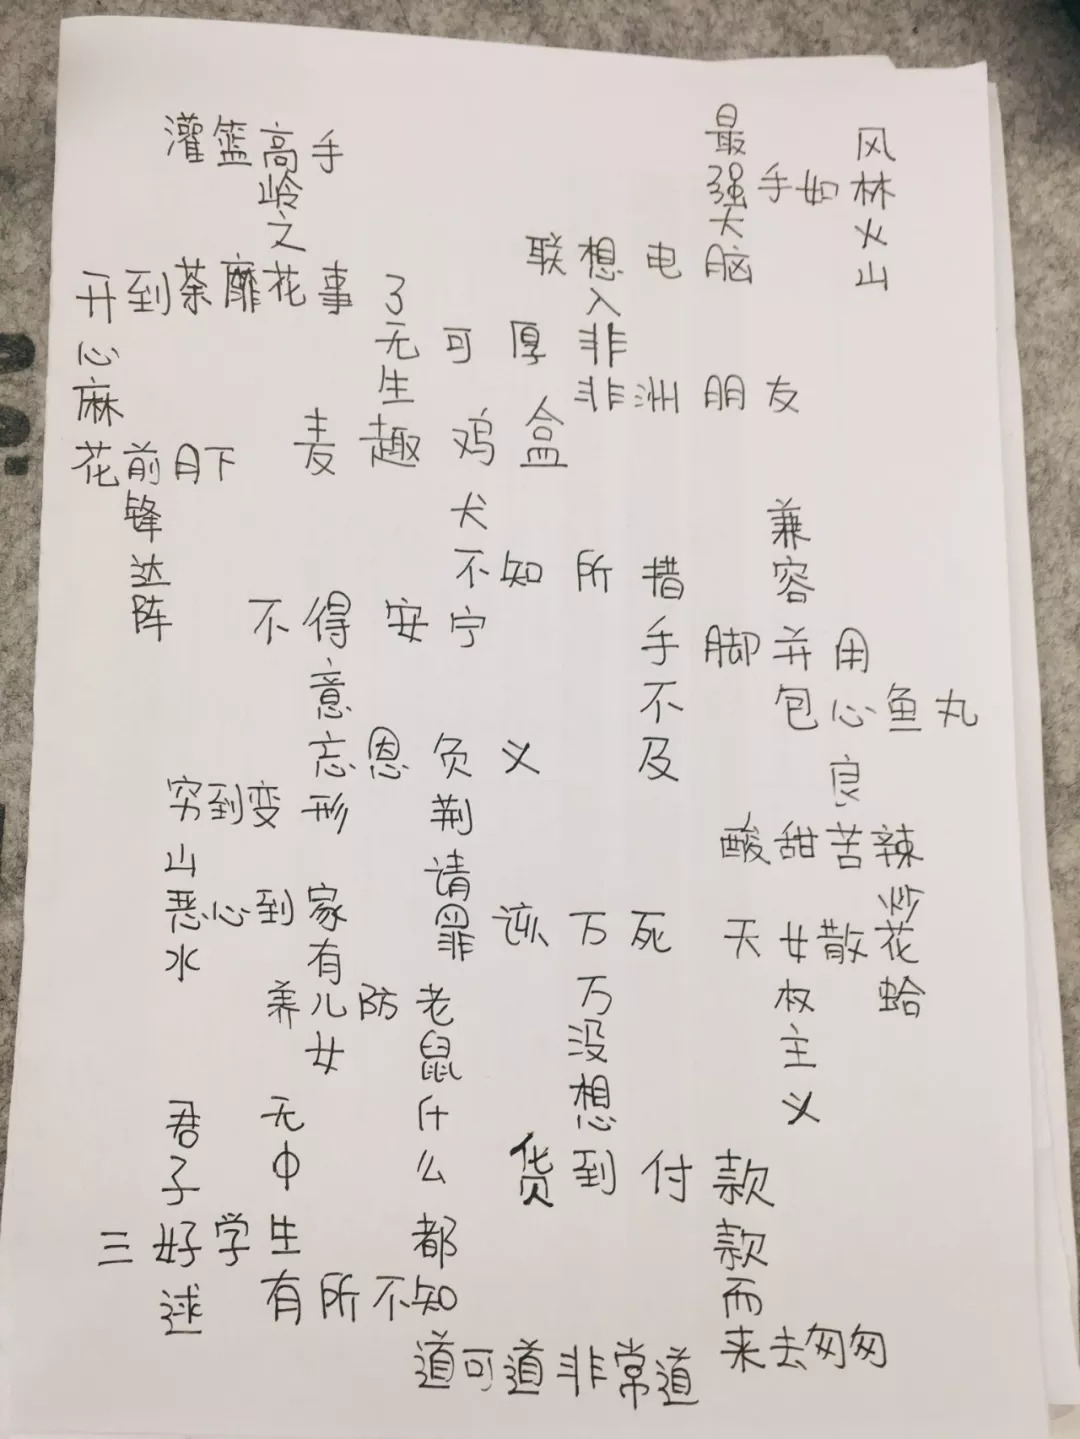 灌篮高手
岭
之
开到荼靡花事了
心
麻
花前月下
锋
达
阵
最
强手如林
大
联想电脑
风
火
山
入
无可厚非
生
非洲朋友
麦趣鸡盒
犬
不知所措
不得安宁
兼
容
手脚并用
不
包心鱼丸
及
意
忘恩负义
良
穷到变形
荆
酸甜苦辣
山
请
炒
恶心到家
罪该万死
天女散花
水
有
万
权
蛤
养儿防老
没
主
女
鼠
想
义
君
无
什
子
中
么
货到付款
三好学生
都
款
逑
有所不知
而
道可道非常道
来去匆匆